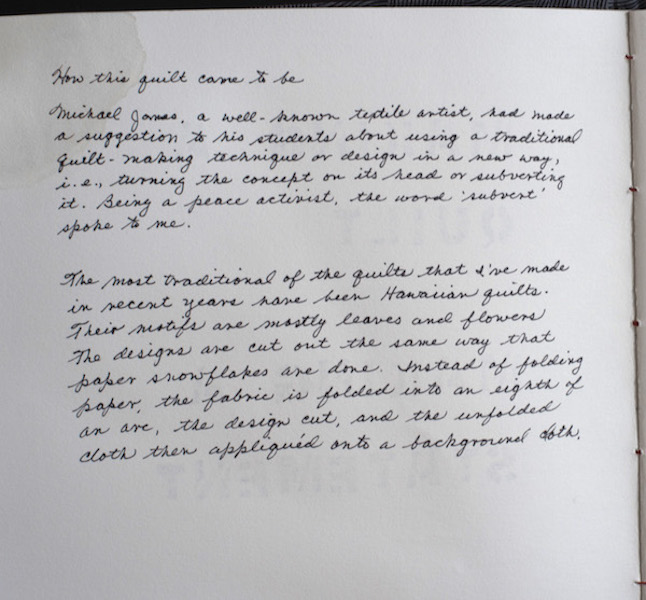 How this quilt came to be
Michael James, a well-known textile artist, had made
a suggestion to his students about using a traditional
quilt-making technique or design in a new way,
i.e., turning the concept on its head or subverting
it. Being a peace activist, the word 'subvert'
spoke to me.
The most traditional of the quilts that I've made
in recent years have been Hawaiian quilts.
Their motifs are mostly leaves and flowers
The designs are cut out the same way that
paper snowflakes are done. Instead of folding
paper, the fabric is folded into an eighth of
an arc, the design cut, and the unfolded
cloth then appliquéd onto a background cloth.